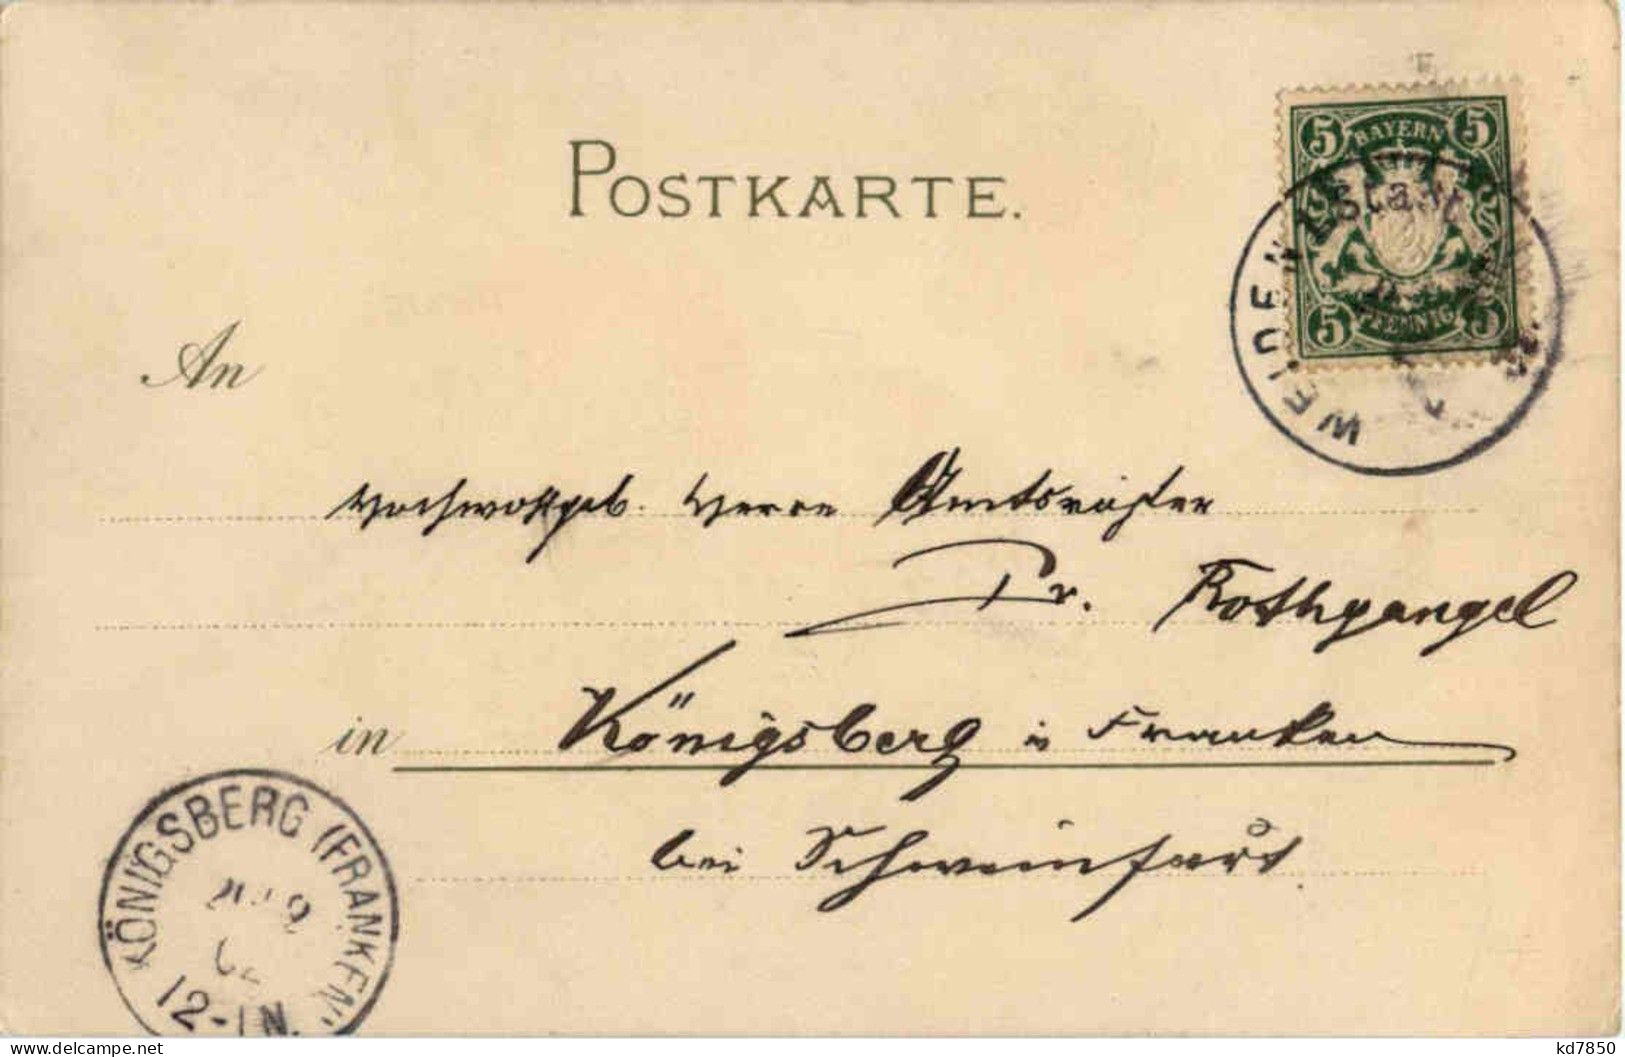 POSTKARTE.
5 BAYERN 5
5 PFENNIG 5
WEIDEN Stadt
An
Hochwohlgeb. Herrn Amtsrichter
Dr. Rothgangel
in Königsberg i Franken
bei Schweinfurt.
KÖNIGSBERG (FRANKEN)
12-1 N.
delcampe.net
kd7850